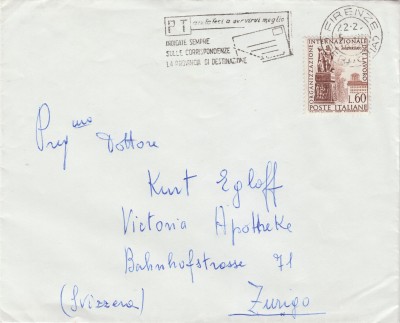 PT aiutateci a servirvi meglio
INDICATE SEMPRE
SULLE CORRISPONDENZE
LA PROVINCIA DI DESTINAZIONE
FIRENZE
22-2
ORGANIZZAZIONE INTERNAZIONALE DEL LAVORO
L.60
POSTE ITALIANE
Preg mo Dottore
Kurt Egloff
Victoria Apotheke
Bahnhofstrasse 71
(Svizzera) Zurigo